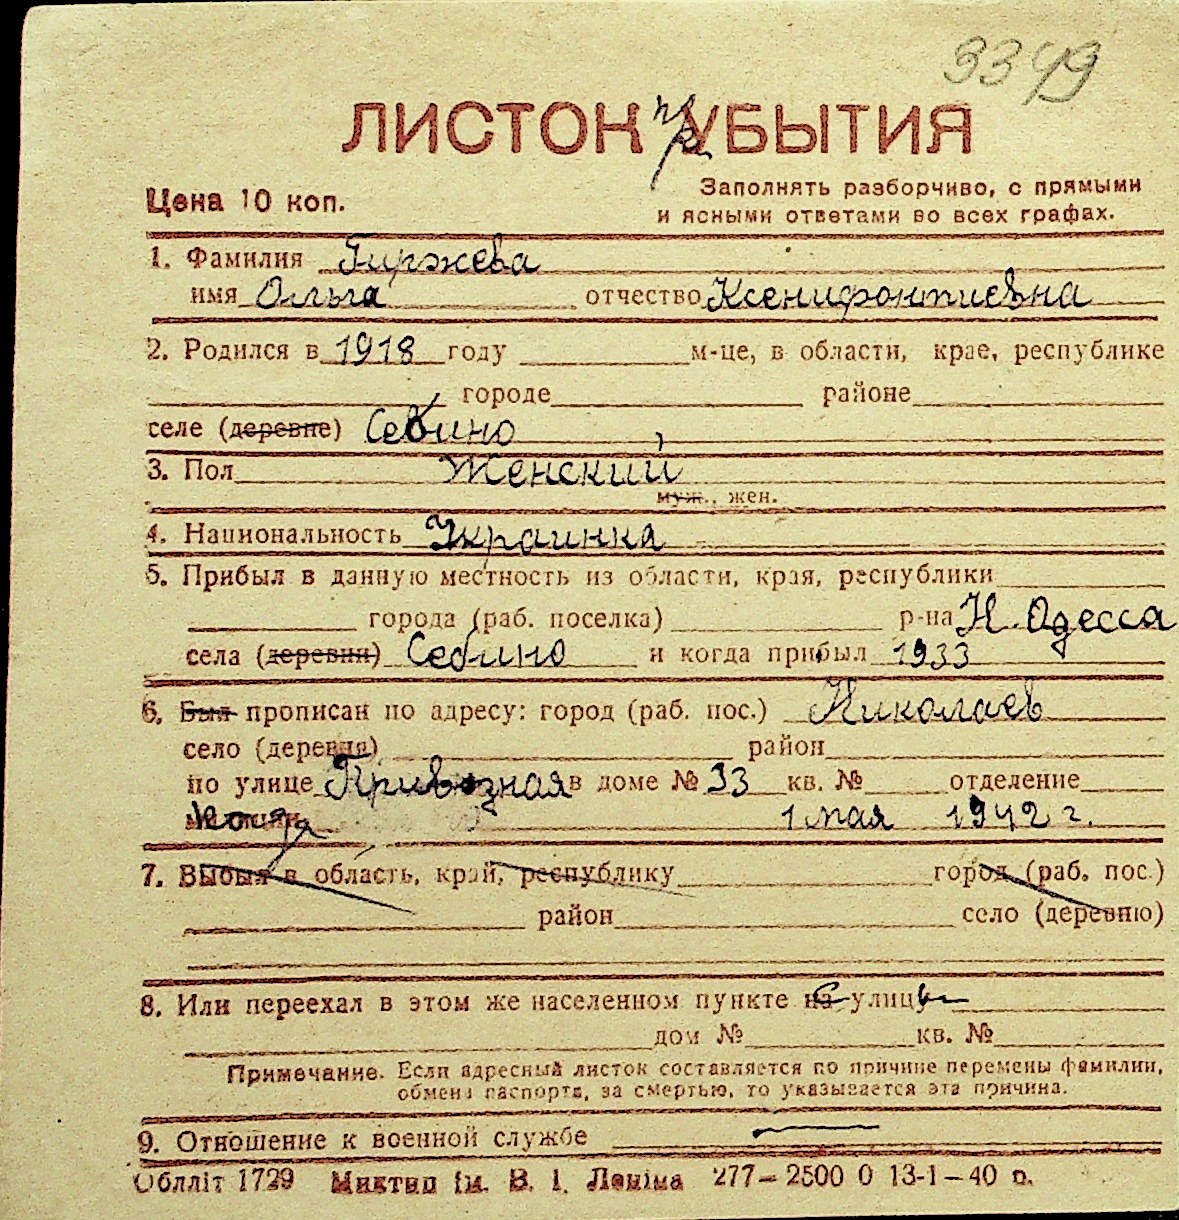 3349
ЛИСТОК прУБЫТИЯ
Цена 10 коп.
Заполнять разборчиво, с прямыми
и ясными ответами во всех графах.
1. Фамилия Гиржева
имя Ольга отчество Ксенифонтиевна
2. Родился в 1918 году м-це, в области, крае, республике
городе районе
селе (деревне) Себино
3. Пол Женский
муж., жен.
4. Национальность Украинка
5. Прибыл в данную местность из области, края, республики
города (раб. поселка) р-на Н. Одесса
села (деревни) Себино и когда прибыл 1933
6. Был прописан по адресу: город (раб. пос.) Николаев
село (деревня) район
по улице Привозная в доме № 33 кв. № отделение
милиции Когда 1 мая 1942 г.
7. Выбыл в область, край, республику город (раб. пос.)
район село (деревню)
8. Или переехал в этом же населенном пункте на с улицы
дом № кв. №
Примечание. Если адресный листок составляется по причине перемены фамилии,
обмена паспорта, за смертью, то указывается эта причина.
9. Отношение к военной службе —
Обллiт 1729 Миктип iм. В. I. Ленiна 277—2500 0 13-1—40 р.